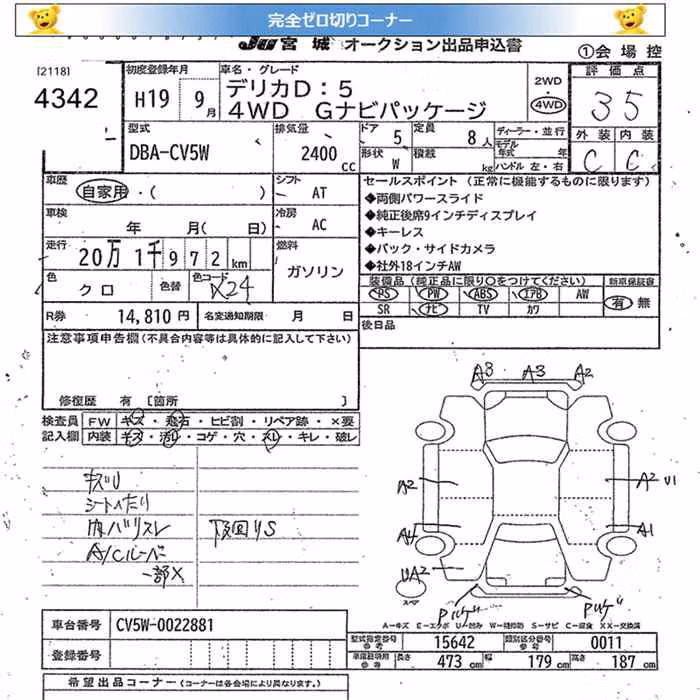 完全ゼロ切りコーナー
JU 宮城 オークション出品申込書
①会場控
[2118]
4342
初度登録年月
H19 9月
車名・グレード
デリカD:5
4WD Gナビパッケージ
2WD
4WD
評価点
35
外装 内装
C C
型式
DBA-CV5W
排気量
2400 CC
ドア 5
形状 W
定員 8人
積載 kg
ディーラー・並行
モデル年式 年
ハンドル 左・右
車歴
自家用・( )
シフト
AT
車検
年 月( 日)
冷房
AC
走行
20万 1千 972 km
燃料
ガソリン
色
クロ
色替
色コード
X24
R券 14,810 円
名変通知期限 月 日
セールスポイント (正常に機能するものに限ります)
◆両側パワースライド
◆純正後席9インチディスプレイ
◆キーレス
◆バック・サイドカメラ
◆社外18インチAW
装備品(純正品に限り○をつけてください)
新車保証書
PS PW ABS エアB AW
SR ナビ TV カワ
有 無
後日品
注意事項申告欄(不具合内容等は具体的に記入して下さい)
修復歴 有 [箇所 ]
検査員記入欄
FW キズ・飛石・ヒビ割・リペア跡・×要
内装 キズ・汚レ・コゲ・穴・スレ・キレ・破レ
キズU
シートへたり
内バリスレ
A/Cルーバー
一部X
下回りS
A3 A3 A2
A2 A2 U1
A4 A1
UA2
スペア
Pバゲ Pバゲ
A=キズ E=エクボ U=凹み W=補修跡 S=サビ C=腐食 XX=交換済
車台番号 CV5W-0022881
登録番号
型式指定番号 参考 15642
類別区分番号 参考 0011
車庫証明用 参考 長さ 473 cm 幅 179 cm 高さ 187 cm
希望出品コーナー (コーナーは各会場により異なります。)